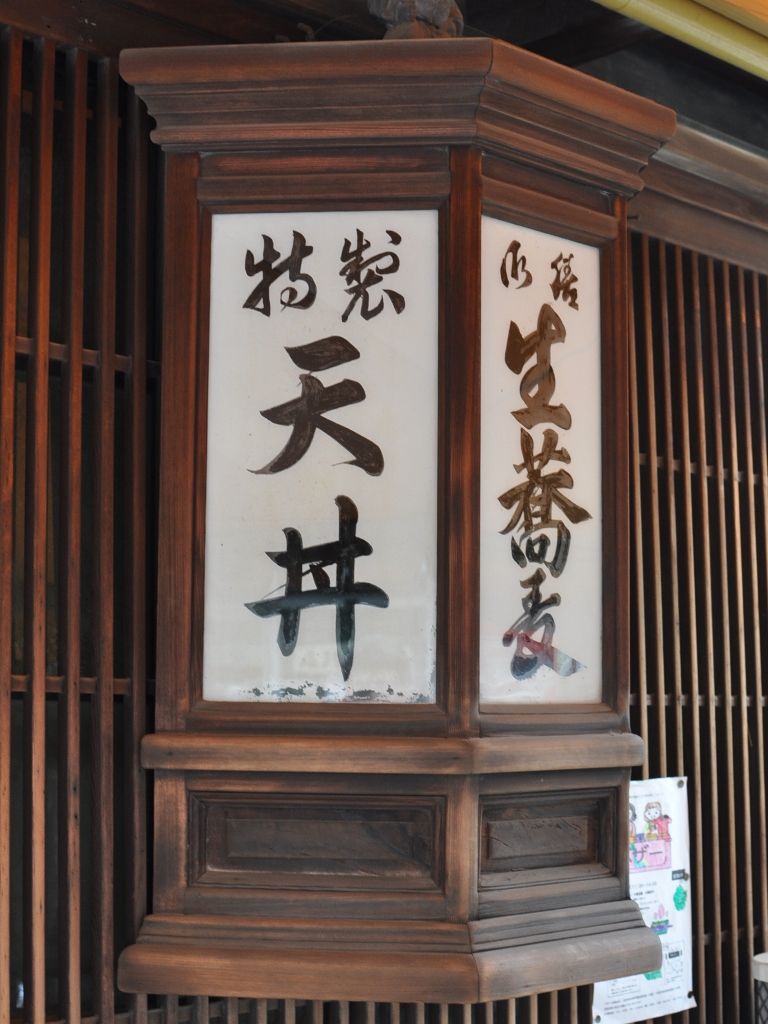 特製
天丼
御膳
生蕎麦